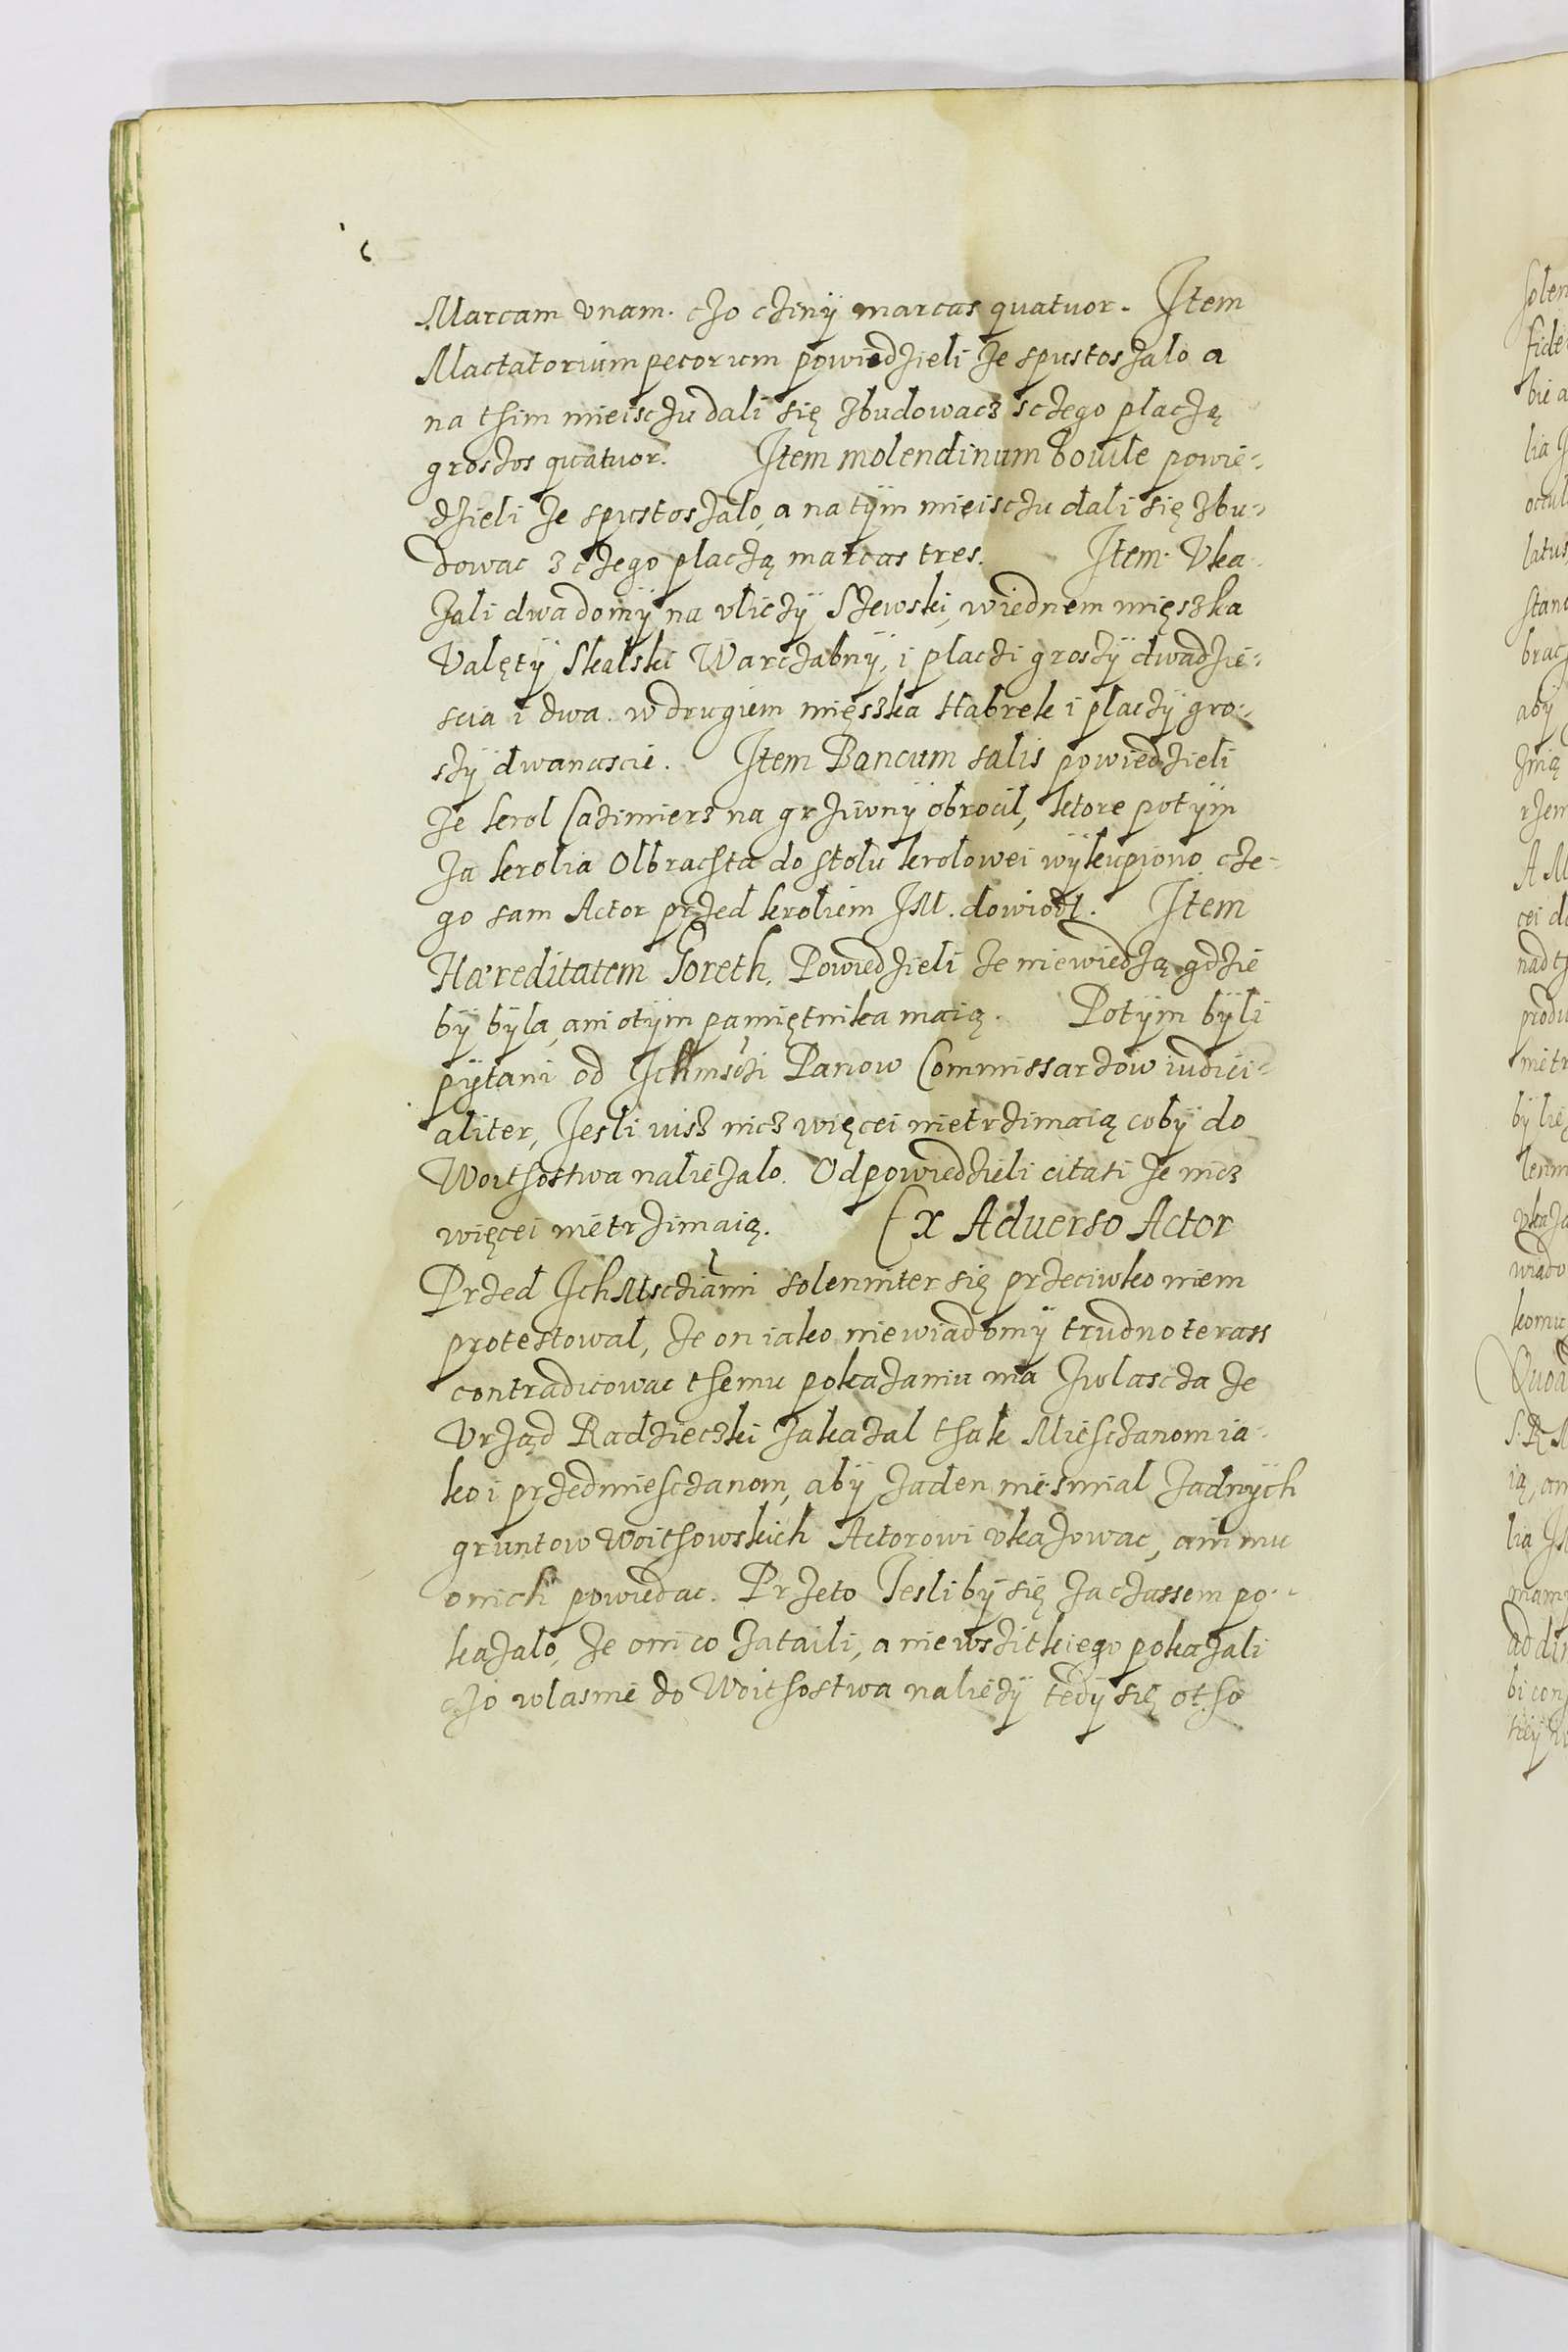 Marcam vnam. czo cziny marcas quatuor. Item
Mactatorium pecorum powiedzieli ze spustoszalo a
na thim mieisczu dali się zbudowacz sczego placzą
groszos quatuor. Item molendinum bouile powie-
dzieli ze spustoszalo, a na tÿm mieisczu dali się zbu-
dowac z czego placzą marcas tres. Item. Vka-
zali dwa domÿ na vliczÿ Szewski, wiednem mięszka
Valętÿ Skalski Warczabnÿ, i placzi groszÿ dwadzie-
scia i dwa. w drugiem mięszka Habrek i placzÿ gro-
szÿ dwanascie. Item Bancum salis powiedzieli
ze krol Cazimierz na grziwnÿ obrocil, ktore potÿm
za krolia Olbrachta do stolu krolowei wÿkupiono cze-
go sam Actor przed kroliem JM. dowiodl. Item
Hæreditatem Goreth. Powiedzieli ze niewiedzą gdzie
bÿ bÿla, ani otÿm pamiętnika maią. Potÿm bÿli
pÿtani od Ichmsczi Panow Commissarzow iudici-
aliter, Jesli iusz nicz więcei nietrzimaią cobÿ do
Woithostwa naliezalo. Odpowiedzieli citati ze nicz
więcei nietrzimaią. Ex Aduerso Actor
Przed IchMscziami solenniter się przeciwko niem
protestowal, ze on iako niewiadomÿ trudno terass
contradicowac themu pokazaniu ma zwlascza ze
Vrząd Radzieczki zakazal thak Miesczanom ia-
ko i przedmiesczanom, abÿ zaden niesmial zadnÿch
gruntow Woithowskich Actorowi vkazowac, ani mu
onich powiedac. Przeto Jesli bÿ się za czassem po-
kazalo, ze oni co zataili, a niewszitkiego pokazali
czo wlasnie do Woithostwa naliezÿ tedÿ się otho